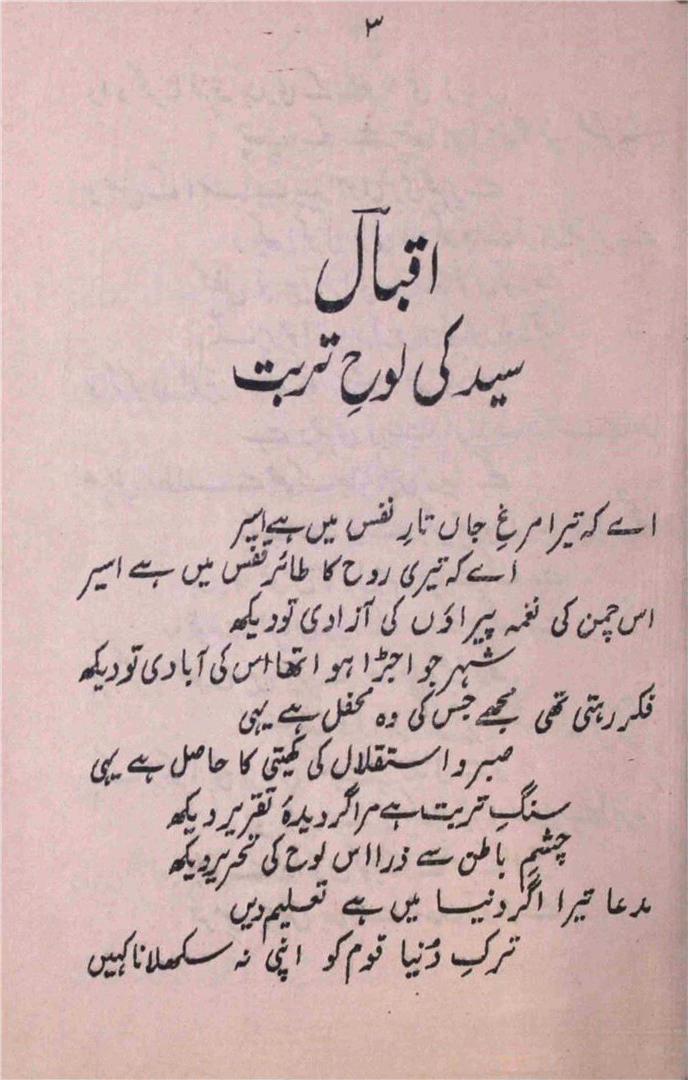 ۳
اقبالؔ
سید کی لوحِ تربت
اے کہ تیرا مرغِ جاں تارِ نفس میں ہے اسیر
اے کہ تیری روح کا طائر قفس میں ہے اسیر
اس چمن کی نغمہ پیراؤں کی آزادی تو دیکھ
شہر جو اجڑا ہوا تھا اس کی آبادی تو دیکھ
فکر رہتی تھی مجھے جس کی وہ محفل ہے یہی
صبر و استقلال کی کھیتی کا حاصل ہے یہی
سنگِ تربت ہے مرا گردیدۂ تقریر دیکھ
چشمِ باطن سے ذرا اس لوح کی تحریر دیکھ
مدعا تیرا اگر دنیا میں ہے تعلیم دیں
ترکِ دُنیا قوم کو اپنی نہ سکھلانا کہیں